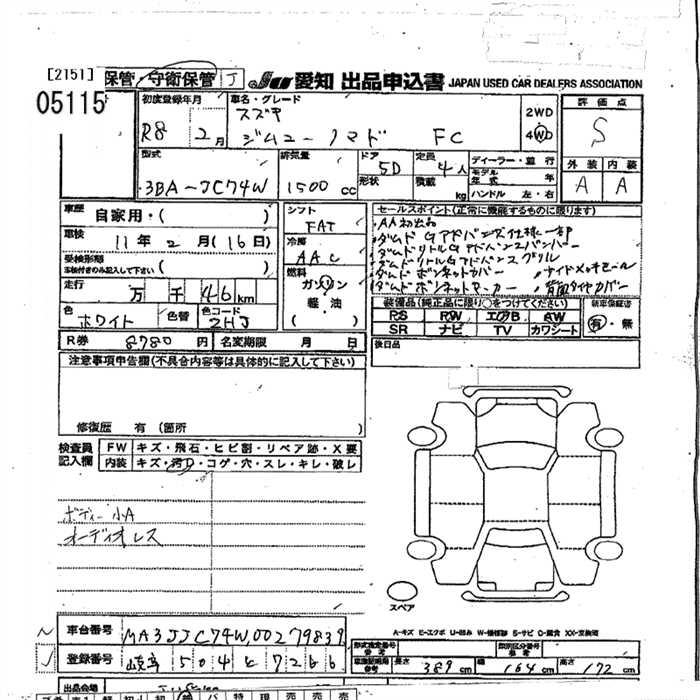 [2151] 保管・守衛保管 J JU 愛知 出品申込書 JAPAN USED CAR DEALERS ASSOCIATION
05115
初度登録年月 車名・グレード 評価点
R8 2月 スズキ ジムニーノマド FC 2WD 4WD S
型式 排気量 ドア 定員 ディーラー・並行 外装 内装
3BA-JC74W 1500cc 5D 4人 モデル年式 年 A A
形状 積載 kg ハンドル 左・右
車歴 自家用・( ) シフト FAT セールスポイント(正常に機能するものに限ります)
車検 11年2月(16日) 冷房 AAC
・AA初出品
・ダムド Gアドバンス仕様一部
・ダムドリトルGアドバンスバンパー
・ダムドリトルGアドバンスグリル
・ダムドボンネットカバー ・サイドメッキモール
・ダムドボンネットマーカー ・背面タイヤカバー
受検形態 ( ) 燃料 ガソリン 軽・油
走行 万千46km
装備品(純正品に限り○をつけてください) 新車保証書
色 ホワイト 色替 色コード 2HJ
PS PW エアB AW 有・無
SR ナビ TV カワシート
R券 8780円 名変期限 月 日 後日品
注意事項申告欄(不具合内容等は具体的に記入して下さい)
修復歴 有(箇所 )
検査員記入欄 FW キズ・飛石・ヒビ割・リペア跡・X要
内装 キズ・汚・コゲ・穴・スレ・キレ・破レ
ボディー小A
オーディオレス
スペア
A-キズ E-エクボ U-凹み W-補修跡 S-サビ C-腐食 XX-交換済
車台番号 MA3JJC74W00279839
登録番号 岐阜504と7266
長さ 389cm 幅 164cm 高さ 172cm
出品会場